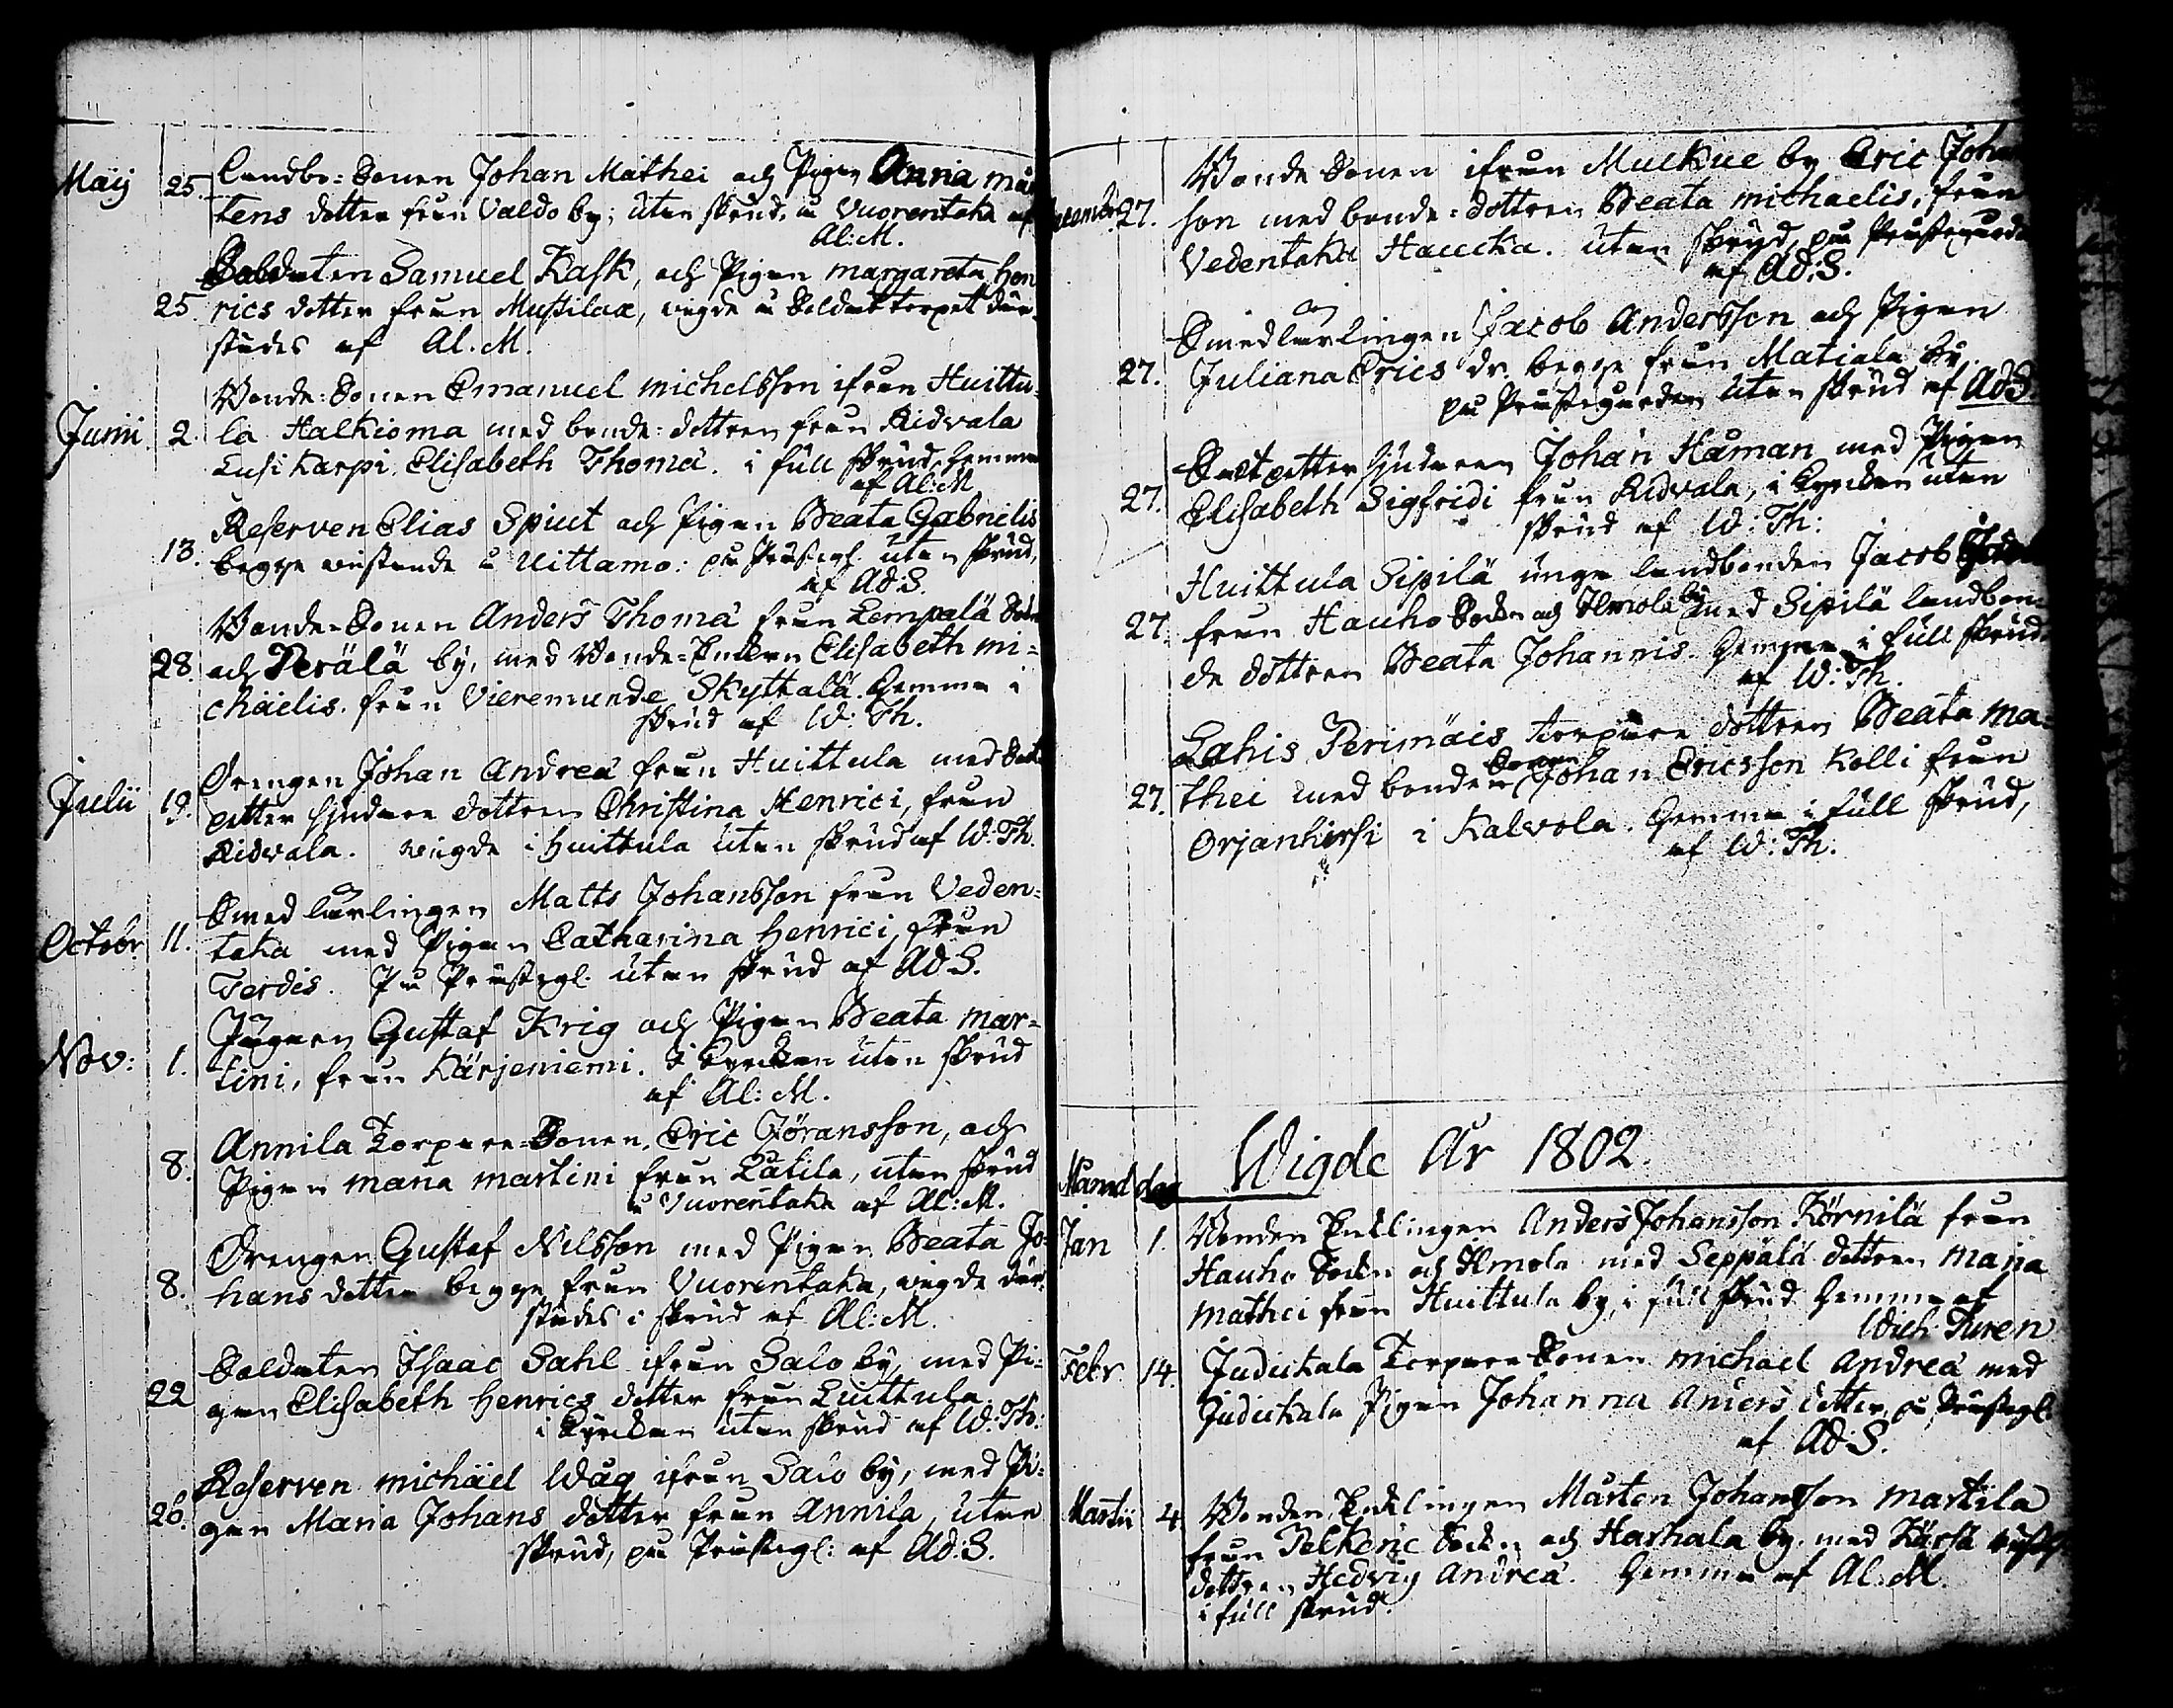 Maij 25. Landbo-Sonen Johan Mathei och Pigan Anna Mår
tens dotter från Valdo by; utan skrud, å Vuorentaka af
Al: M.
Soldaten Samuel Kask, och Pigan Margareta Hen
25. rics dotter från Mustilax, vigde å Soldat torpet där
städes af Al. M.
Bonde-Sonen Emanuel Michelsson ifrån Huittu
Junii 2. la Halkioma med bonde-dottren från Ridvala
Lusikarpi, Elisabeth Thomæ. i full skrud, hemma
af Al: M
Reserven Elias Spiut och Pigan Beata Gabrielis
13. begge vistande å Uittamo: på Prästeg. utan skrud,
af Ad: S.
Bonde-Sonen Anders Thomæ från Lempälä Sokn
28. och Perälä by, med Bonde-Enkan Elisabeth Mi=
chaelis från Vieremunde Skyttälä. Hemma i
skrud af W: Th.
Drengen Johan Andreæ från Huittula med Salt
Julii 19. petter sjudare dottren Christina Henrici, från
Ridvala. vigde i Huittula utan skrud af W: Th.
Smed lärlingen Matts Johansson från Veden=
Octobr 11. taka med Pigan Catharina Henrici, från
Terdis. På Prästeg. utan skrud af Ad S.
Jägaren Gustaf Krig och Pigan Beata Mar=
Nov: 1. tini, från Kärjeniemi. I Kyrckan utan skrud
af Al: M.
Annila Torpare-Sonen, Eric Jöransson, och
8. Pigan Maria Martini från Lätila, utan skrud
å Vuorentaka af Al: M.
Drengen Gustaf Nilsson med Pigan Beata Jo=
8. hans dotter begge från Vuorentaka, vigde där
städes i skrud af Al: M.
Soldaten Isaac Sahl ifrån Salo by, med Pi=
22 gan Elisabeth Henrics dotter från Luittula
i Kyrckan utan skrud af W: Th:
Reserven Michäel Wåg ifrån Salo by, med Pi=
26. gan Maria Johans dotter från Annila, utan
skrud, på Prästeg: af Ad: S.
Bonde Sonen ifrån Muckue by Eric Johan
December 27. son med bonde-dottren Beata Michaelis, från
Vedentaka Haucka. utan skrud, på Prästegården
af Ad: S.
Smedlärlingen Jacob Andersson och Pigan
27. Juliana Erics dr. begge från Matiala by.
på Prästegården utan skrud af Ad S.
Saltpetter sjudaren Johan Håman med Pigan
27. Elisabeth Sigfridi från Ridvala, i Kyrckan utan
skrud af W: Th:
Huittula Sipilä unge landbonden Jacob
27. från Hauho Sockn och Ilmola by med Sipilä landbon=
de dottren Beata Johannis. Hemma i full skrud.
af W: Th.
Lahis Perimäis torpare dottren Beata Ma=
27. thei med bonde Sonen Johan Ericsson Kolli från
Orjanhirsi i Kalvola. Hemma i full skrud,
af W: Th.
Wigde År 1802.
Månad dag
Jan 1. Bonden Enklingen Anders Johansson Körnilä från
Hauho Sockn och Ilmola med Seppälä dottren Maja
Mathei från Huittula by, i full skrud Hemma af
Wich Turen
Febr. 14. Judickala Torpare Sonen Michael Andreæ med
Judickala Pigan Johanna Anders dotter, på Prästeg.
af Ad: S.
Martii 4 Bonden, Enklingen Mårten Johansson Martila
från Pelkene Sockn och Harhala by. med Kärsä
dottren Hedvig Andreæ. Hemma af Al: M.
i full skrud.